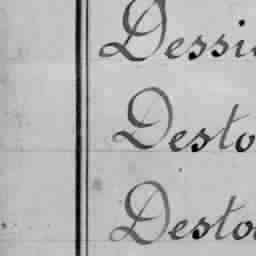 Dessi
Desto
Desto